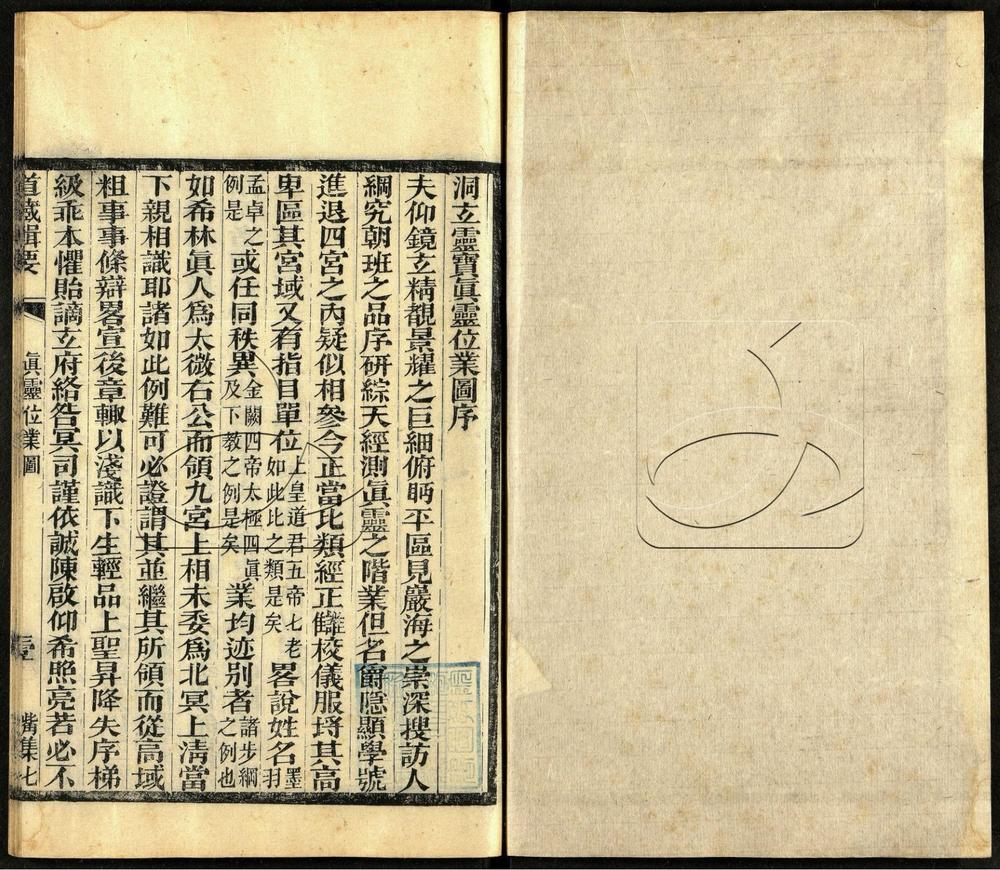 洞玄靈寶眞靈位業圖序
夫仰鏡玄精覩景耀之巨細俯眄平區見巖海之崇深搜訪人
綱究朝班之品序研綜天經測眞靈之階業但名爵隱顯學號
進退四宮之內疑似相參今正當比類經正讎校儀服埒其高
卑區其宮域又有指目單位上皇道君五帝七老如此比之類是矣畧說姓名墨羽
孟卓之例是或任同秩異金闕四帝太極四眞及下教之例是矣業均迹別者諸步綱之例也
如希林眞人爲太微右公而領九宮上相未委爲北冥上清當
下親相識耶諸如此例難可必證謂其並繼其所領而從高域
粗事事條辯畧宣後章輒以淺識下生輕品上聖昇降失序梯
級乖本懼貽謫玄府絡咎冥司謹依誠陳啟仰希照亮若必不
道藏輯要 眞靈位業圖 壹 觜集七